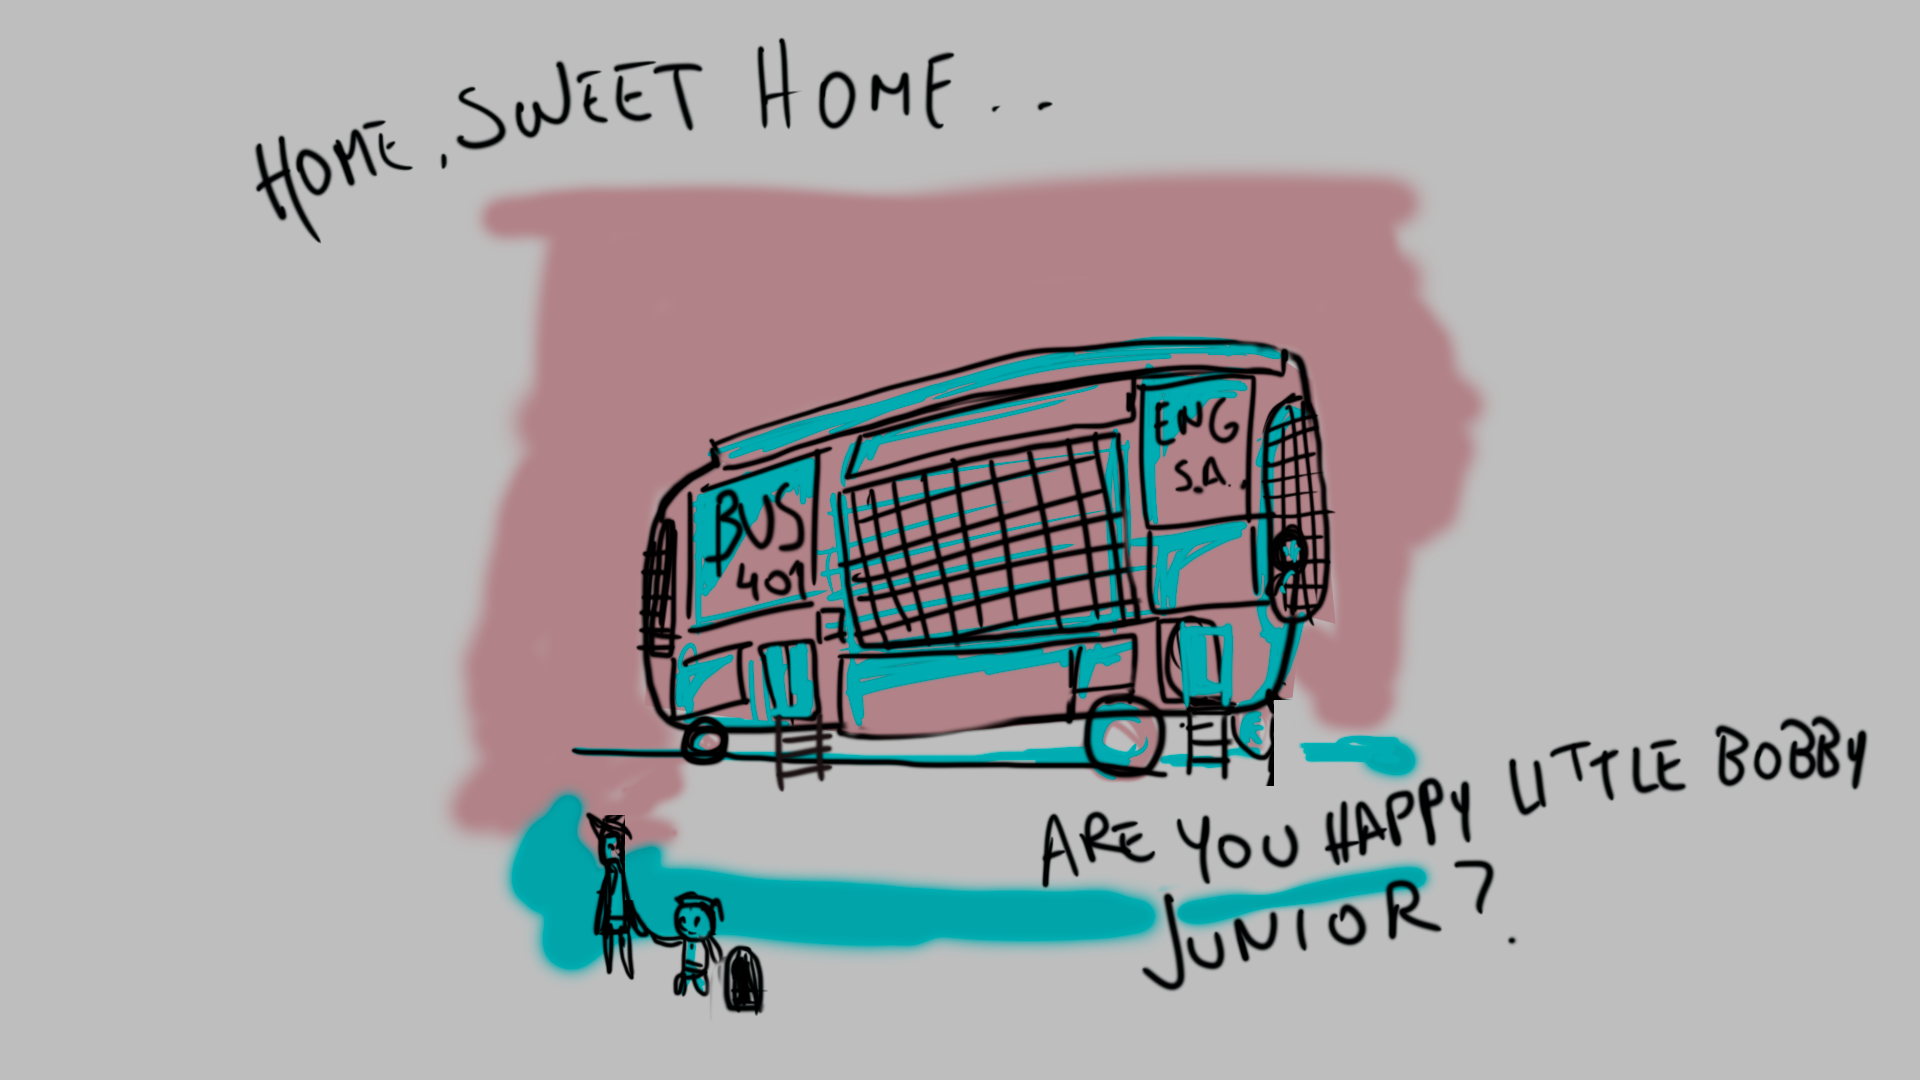 HOME, SWEET HOME..
BUS
401
ENG
S.A.
ARE YOU HAPPY LITTLE BOBBY
JUNIOR?